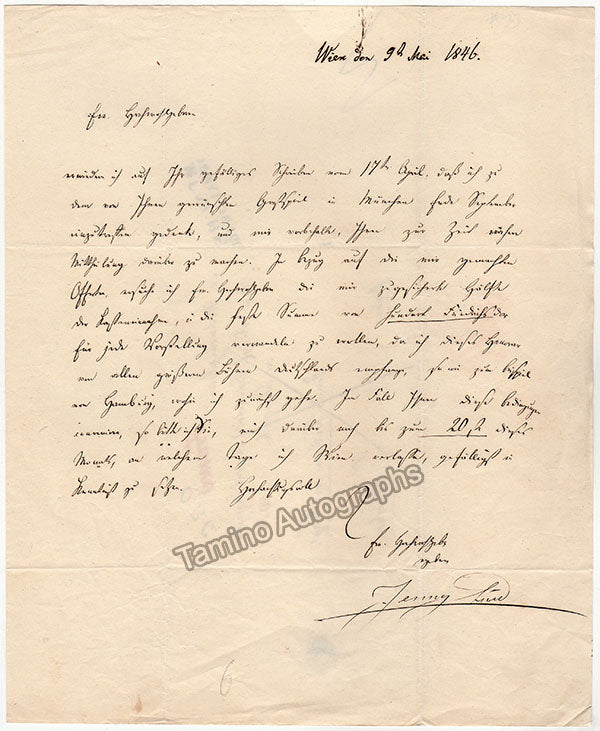 Wien den 9t Mai 1846.
Ew. Hochwohlgeboren
erwiedre ich auf Ihr gefälliges Schreiben vom 17ten April, daß ich zu
dem von Ihnen gewünschten Gastspiel in München Ende September
einzutreffen gedenke, und mir vorbehalte, Ihnen zur Zeit nähere
Mittheilung darüber zu machen. In bezug auf die mir gemachten
Offerten, ersuche ich Ew. Hochwohlgeb die mir zugesicherte Hälfte
der Kasseneinnahme, in die feste Summe von hundert Friedrichsdor
für jede Vorstellung verwandeln zu wollen, da ich dieses Honorar
von allen größeren Bühnen Deutschlands empfange, so wie zum beispiel
von Hamburg, wohin ich zunächst gehe. Im Fall Ihnen diese bedingungen
so bitte ich Sie, mich darüber noch bis zum 20ten dieses
Monats, an welchem Tage ich Wien verlasse, gefälligst in
Kenntniß zu setzen. Hochachtungsvoll
Ew. Hochwohlgeb
ergebene
Jenny Lind
6
Tamino Autographs